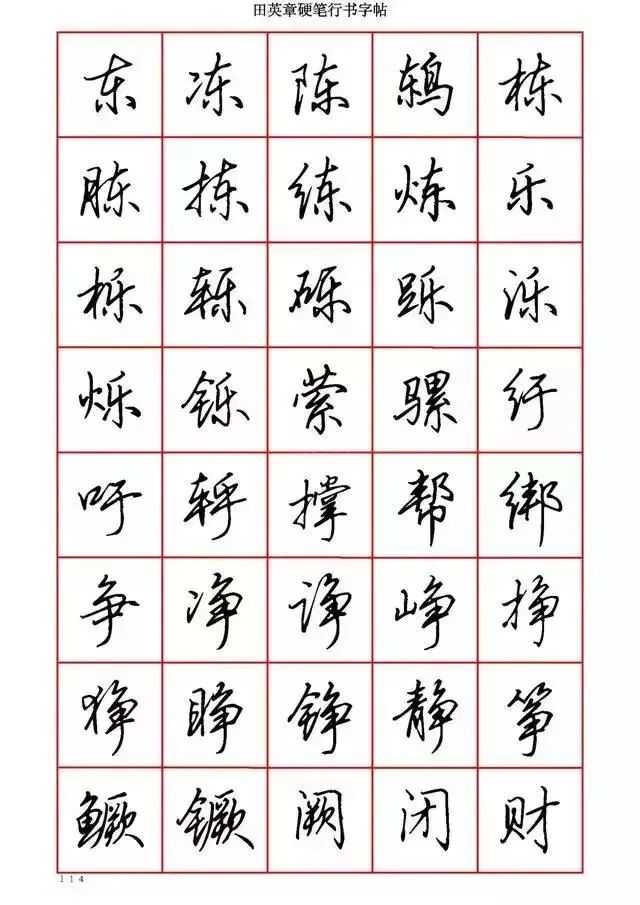 田英章硬笔行书字帖
东 冻 陈 鸫 栋
胨 拣 练 炼 乐
栎 轹 砾 跞 泺
烁 铄 萦 骡 纡
吁 轷 撑 帮 绑
争 净 诤 峥 挣
狰 睁 铮 静 筝
鳜 镢 阙 闭 财
114